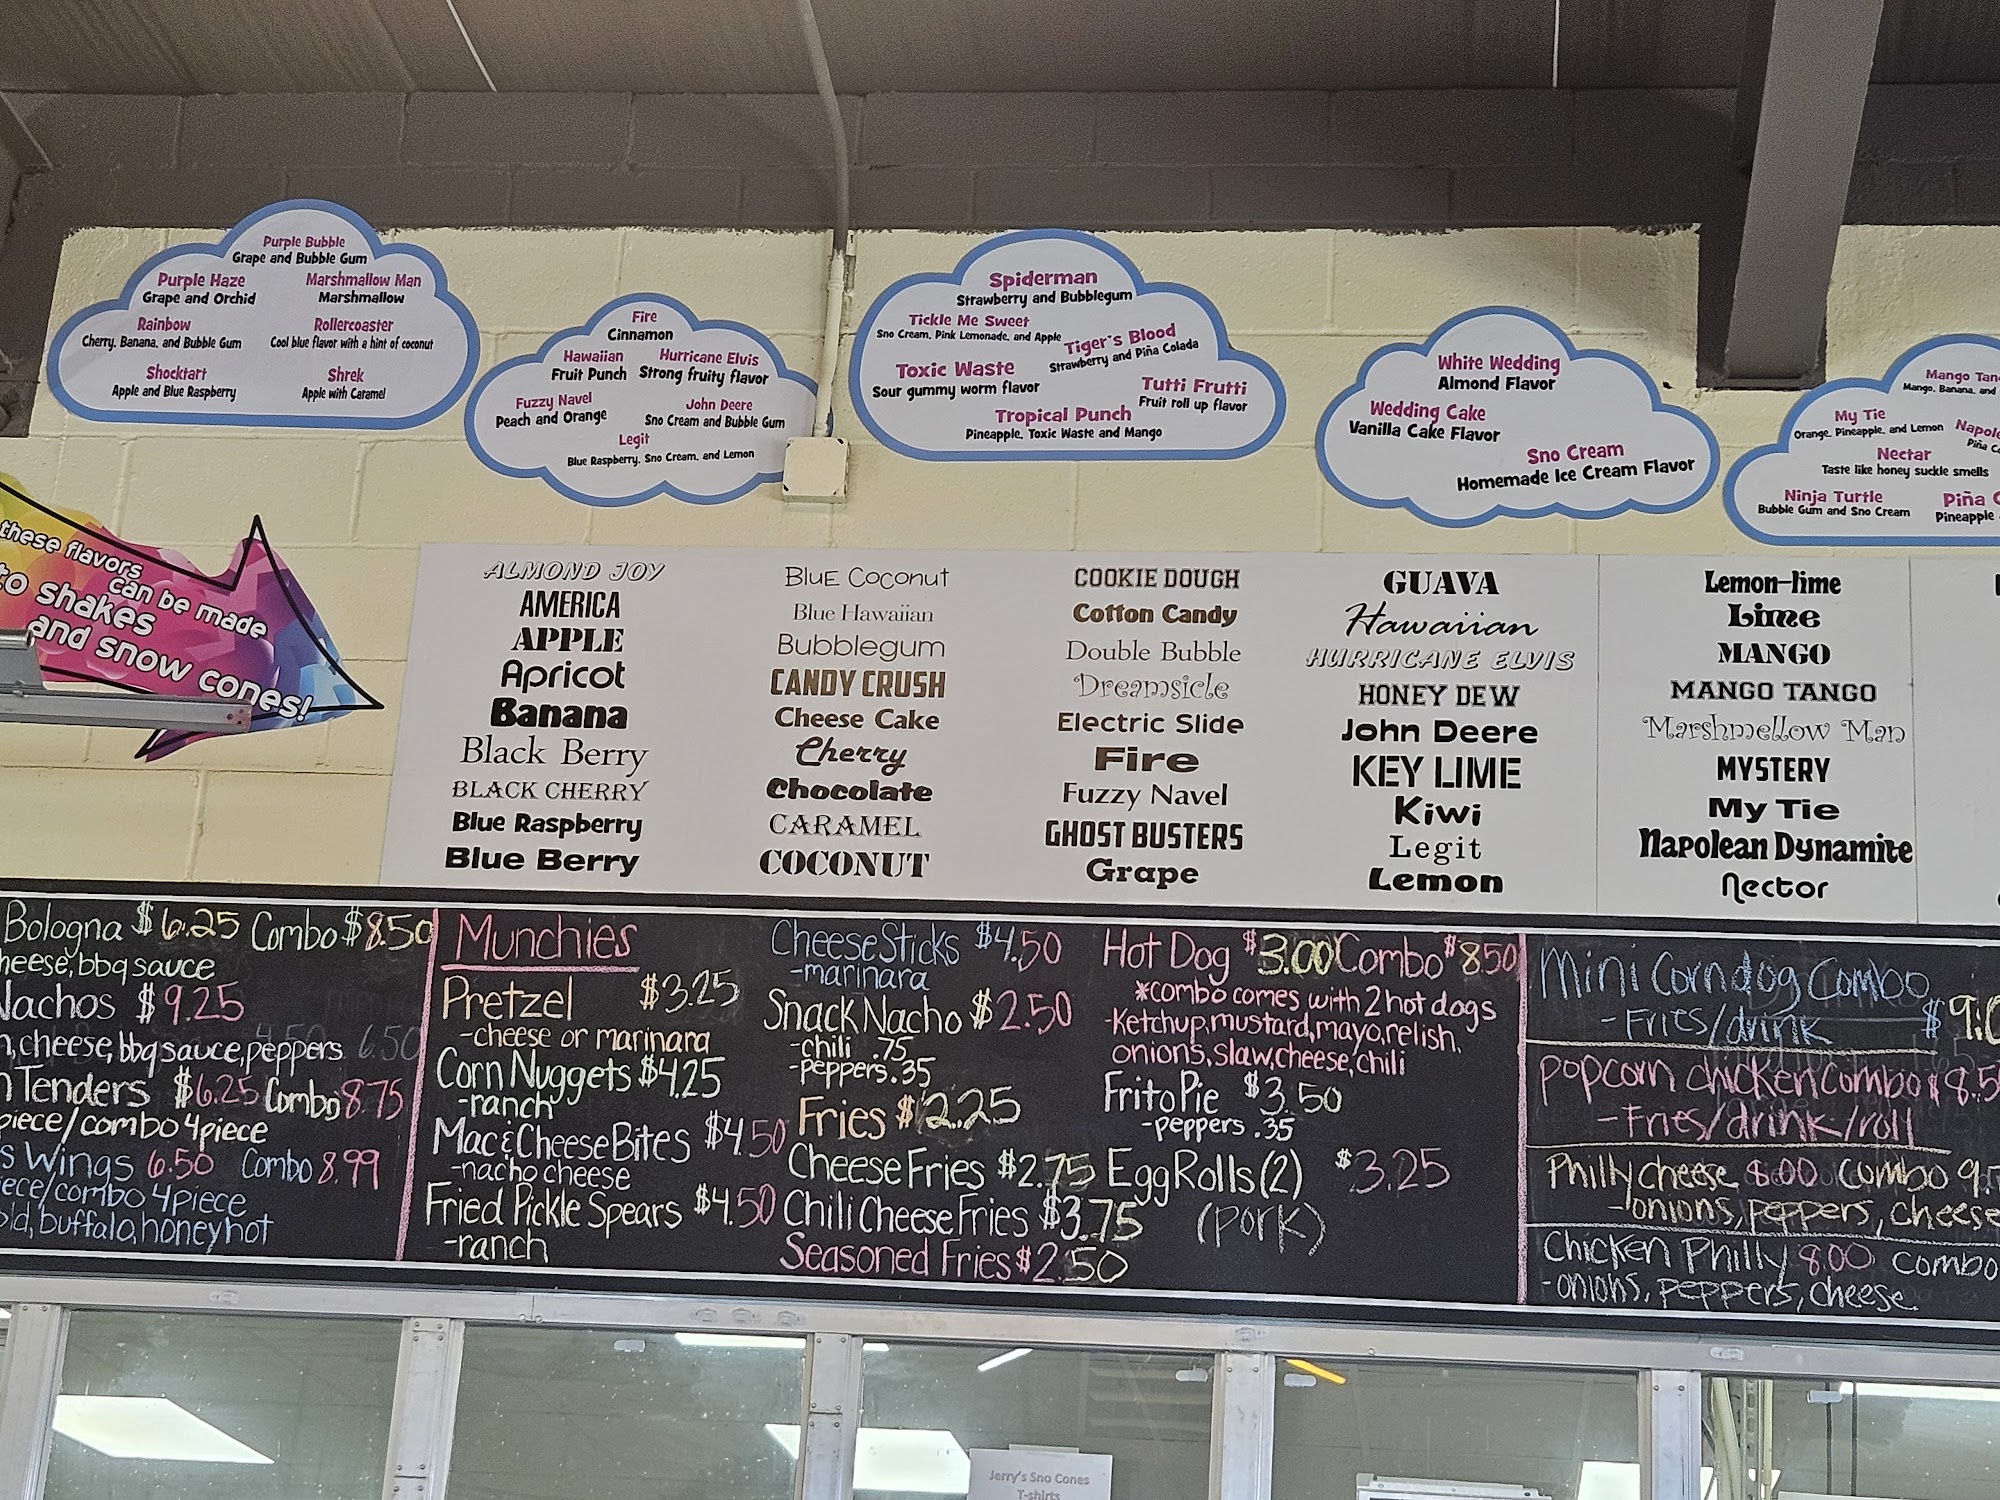 Purple Bubble
Grape and Bubble Gum
Purple Haze
Grape and Orchid
Marshmallow Man
Marshmallow
Rainbow
Cherry, Banana, and Bubble Gum
Rollercoaster
Cool blue flavor with a hint of coconut
Shocktart
Apple and Blue Raspberry
Shrek
Apple with Caramel
Fire
Cinnamon
Hawaiian
Fruit Punch
Hurricane Elvis
Strong fruity flavor
Fuzzy Navel
Peach and Orange
John Deere
Sno Cream and Bubble Gum
Legit
Blue Raspberry, Sno Cream, and Lemon
Spiderman
Strawberry and Bubblegum
Tickle Me Sweet
Sno Cream, Pink Lemonade, and Apple
Tiger's Blood
Strawberry and Piña Colada
Toxic Waste
Sour gummy worm flavor
Tutti Frutti
Fruit roll up flavor
Tropical Punch
Pineapple, Toxic Waste and Mango
White Wedding
Almond Flavor
Wedding Cake
Vanilla Cake Flavor
Sno Cream
Homemade Ice Cream Flavor
Mango Tan
Mango, Banana, and
My Tie
Orange, Pineapple, and Lemon
Napole
Piña C
Nectar
Taste like honey suckle smells
Ninja Turtle
Bubble Gum and Sno Cream
Piña C
Pineapple
these flavors
can be made
to shakes
and snow cones!
ALMOND JOY
AMERICA
APPLE
Apricot
Banana
Black Berry
BLACK CHERRY
Blue Raspberry
Blue Berry
BluE Coconut
Blue Hawaiian
Bubblegum
CANDY CRUSH
Cheese Cake
Cherry
Chocolate
CARAMEL
COCONUT
COOKIE DOUGH
Cotton Candy
Double Bubble
Dreamsicle
Electric Slide
Fire
Fuzzy Navel
GHOST BUSTERS
Grape
GUAVA
Hawaiian
HURRICANE ELVIS
HONEY DEW
John Deere
KEY LIME
Kiwi
Legit
Lemon
Lemon-lime
Lime
MANGO
MANGO TANGO
Marshmellow Man
MYSTERY
My Tie
Napolean Dynamite
Nector
Bologna $6.25 Combo $8.50
heese, bbq sauce
Nachos $9.25
n, cheese, bbq sauce, peppers 6.50
n Tenders $6.25 Combo 8.75
piece/combo 4piece
s Wings 6.50 Combo 8.99
iece/combo 4piece
old, buffalo, honey hot
Munchies
Pretzel $3.25
-cheese or marinara
Corn Nuggets $4.25
-ranch
Mac & Cheese Bites $4.50
-nacho cheese
Fried Pickle Spears $4.50
-ranch
Cheese Sticks $4.50
-marinara
Snack Nacho $2.50
-chili .75
-peppers .35
Fries $2.25
Cheese Fries $2.75
Chili Cheese Fries $3.75
Seasoned Fries $2.50
Hot Dog $3.00 Combo $8.50
*combo comes with 2 hot dogs
-Ketchup, mustard, mayo, relish,
onions, slaw, cheese, chili
Frito Pie $3.50
-peppers .35
Egg Rolls (2) $3.25
(pork)
Mini Corndog Combo
-Fries/drink $9.0
popcorn chicken combo $8.5
-Fries/drink/roll
Philly cheese 8.00 combo 9.
-onions, peppers, cheese
Chicken Philly 8.00 combo
-onions, peppers, cheese
Jerry's Sno Cones
T-shirts